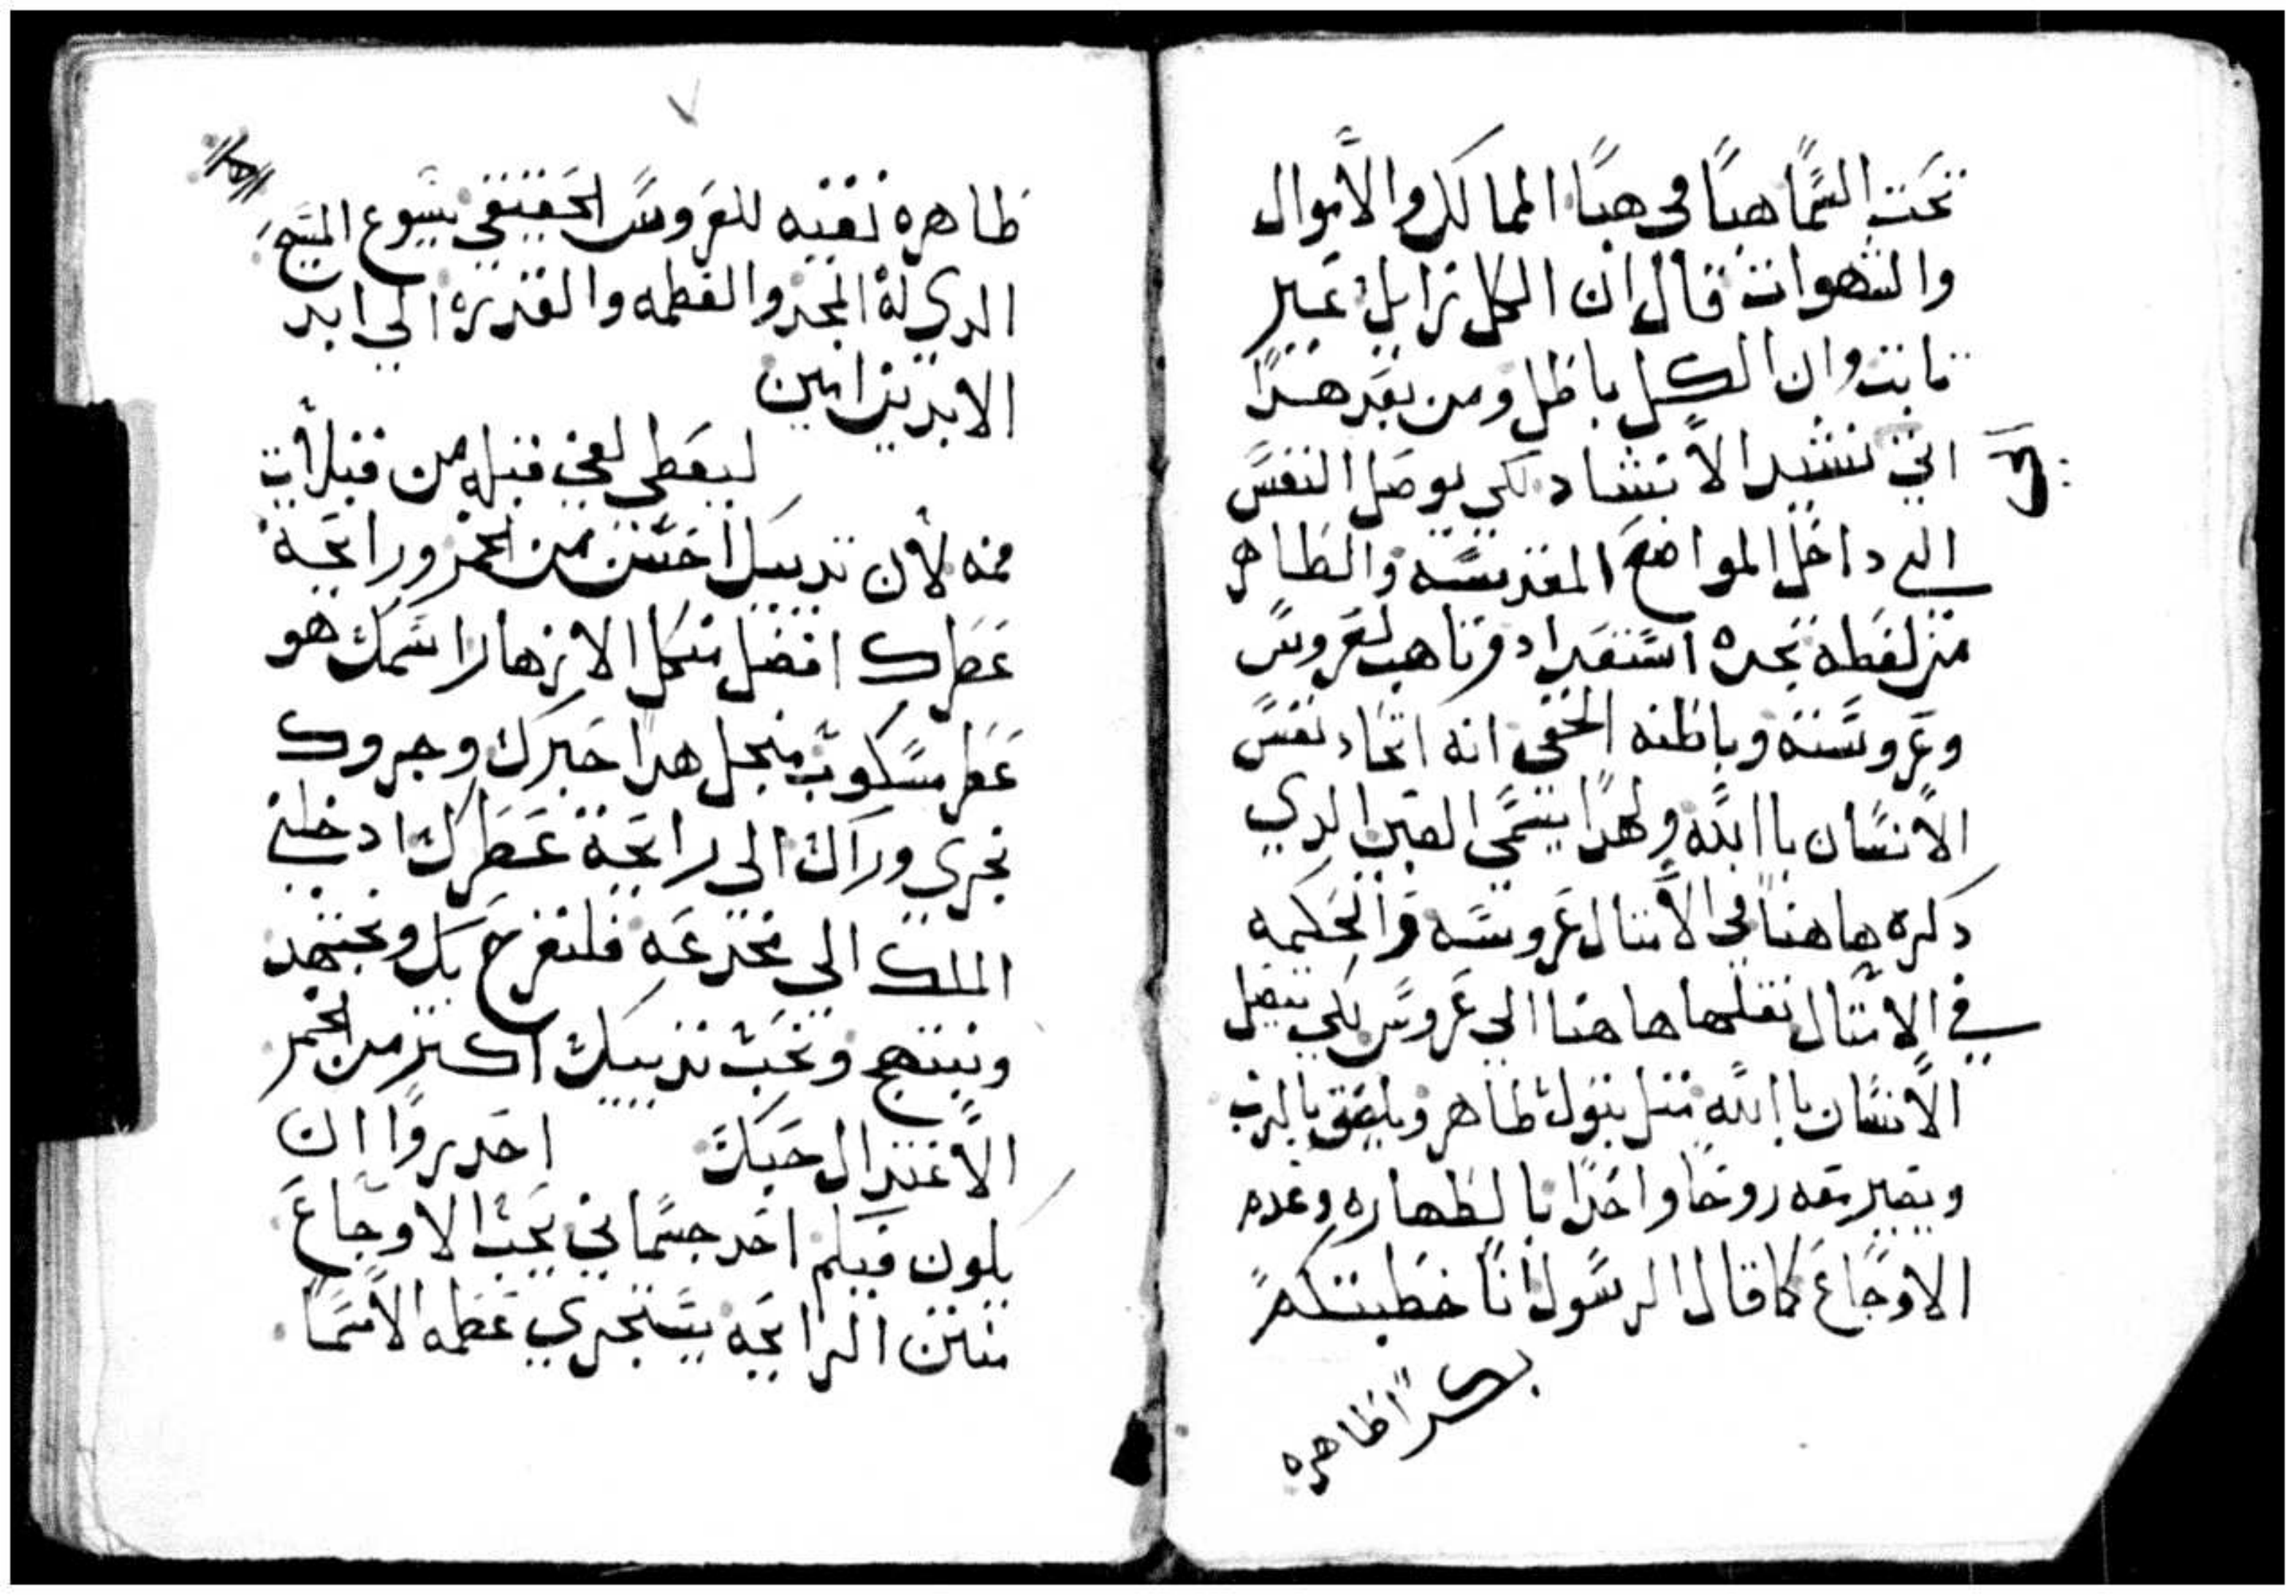 تحت السما هبا في هبا الممالك والأموال
والشهوات قال ان الكل زايل غير
تابت وان الكل باطل ومن بعد هدا
اتي نشيد الانشاد لكي يوصل النفس
الى داخل المواضع المقدسه والظاهر
من لفظه تجده استعداد وتاهب لعروس
وعروسته وباطنه الخفي انه اتحاد نفس
الانسان باالله ولهدا يسمى العتيق الدي
دكره هاهنا في الامتال عروسه والحكيمه
في الامتال نقلها هاهنا الي عروس لكي يتصل
الانسان باالله متل بتول طاهر ويلصق بالرب
ويصير معه روحا واحدا بالطهاره وعدم
الاوجاع كما قال الرسول انا خطبتكم
بكرا طاهره
طاهره نقيه للعروس الحقيقي يسوع المسيح
الدي له المجد والعظمه والقدرة الي ابد
الابدين امين
ليعطي لفمي قبله من قبلات
فمه لأن تدييك احسن من الخمر ورايحة
عطرك افضل من كل الازهار اسمك هو
عطر مسكوب منجل هدا حبرك وجروك
نجري وراك الى رايحة عطرك ادخلني
الملك الي مخدعه فلنفرح بك ونجتهد
ونبتهج ونحب تدييك اكتر من الخمر
الاعتدال حبك احدروا ان
يكون فيكم احد جسماني يحب الاوجاع
منتن الرايحه يستجري عظمه الاسما